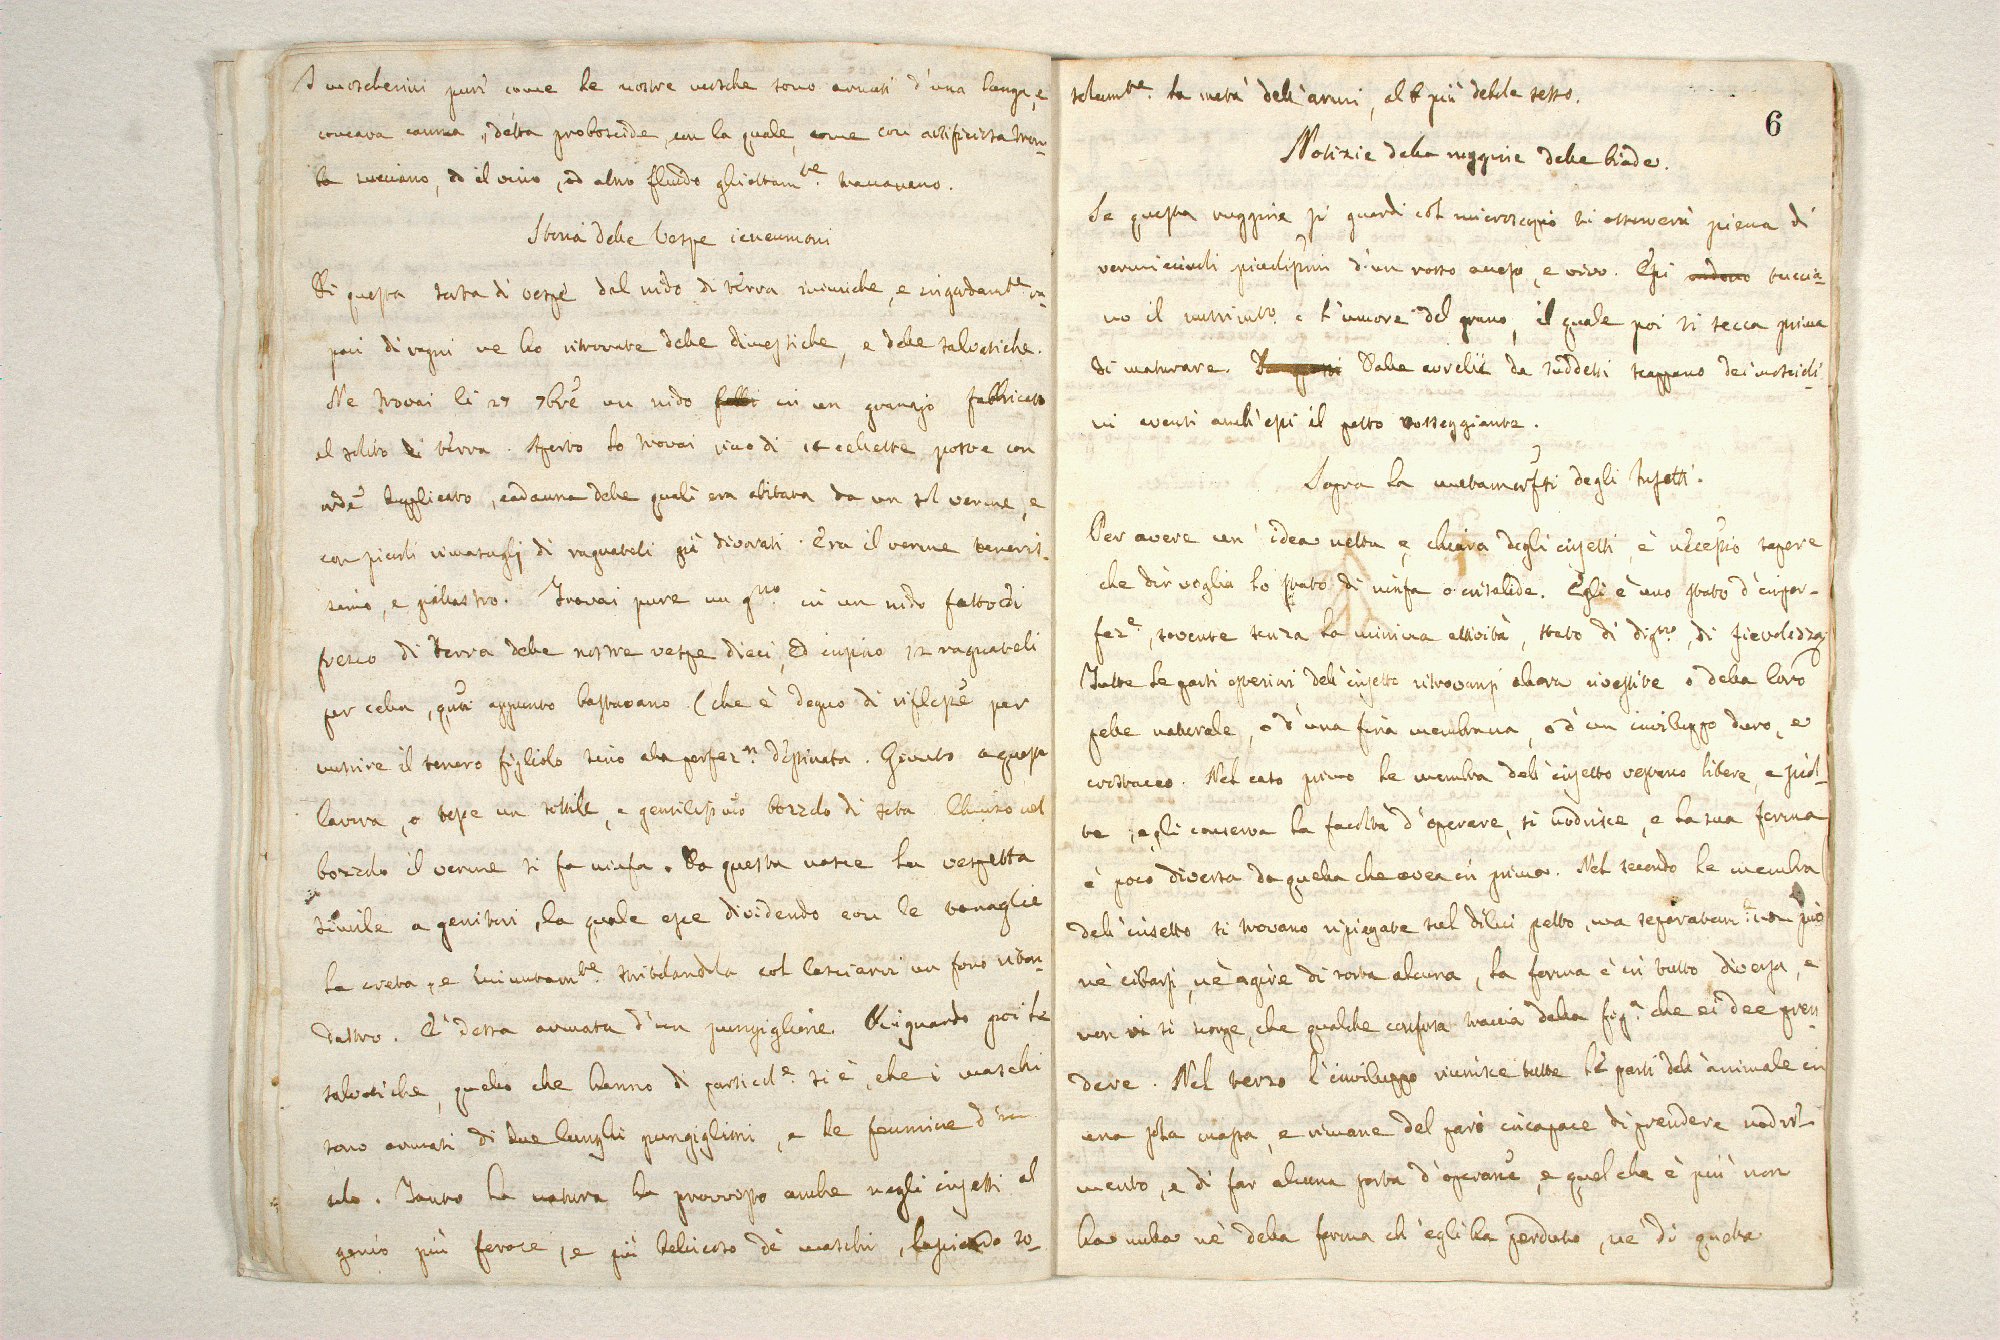 I moscherini puri come le nostre mosche sono armati d'una lunga, e
concava canna, detta proboscide, con la quale, come con artificiosa trom-
ba succiano, ed il vino, ed altro fluido ghiottam.te tracannano.
Storia delle Vespe icneumoni
Di questa sorta di vespe dal nido di terra inimiche, e ingordam.te ra-
paci di ragni ne ho ritrovate delle dimestiche, e delle salvatiche.
Ne trovai li 27 7bre un nido in un granajo fabbricato
al solito di terra. Aperto lo trovai pieno di 14 cellette poste con
orde bizzarro, cadauna delle quali era abitata da un sol verme, e
con piccoli rimasugli di ragnateli già divorati. Era il verme teneris-
simo, e giallastro. Trovai pure un g.no in un nido fatto di
fresco di terra delle nostre vespe dieci, ed insino 12 ragnateli
per cella, quai appunto bastavano (che è degno di riflesse per
nutrire il tenero figliolo sino alla perfez.n destinata. Giunto a questa
larva, o tesse un sottile, e gentilissimo bozzolo di seta. Chiuso nel
bozzolo il verme si fa ninfa. Da questa nasce la vespetta
simile a genitori, la quale esce dividendo con le tanaglie
la creta, e minutam.te stritolandola col lasciarvi un foro roton-
dastro. E' dessa armata d'un pungiglione. Riguardo poi le
salvatiche, quello che hanno di particol.e si è, che i maschi
sono armati di due lunghi pungiglioni, e le femmine d'un
solo. Tanto la natura ha provvisto anche negli insetti al
genio più feroce, e più bellicoso de' maschi, lasciando so-
solam.te la metà dell'armi al più debole sesso.
6
Notizie della ruggine delle biade.
Se questa ruggine si guardi col microscopio si osserverà piena di
vermicciuoli piccolissimi d'un rosso acceso, e vivo. Essi succia-
no il nutrim.to e l'umore del grano, il quale poi si secca prima
di maturare. Dalle aurelie de suddetti scappano dei moscioli-
ni aventi anch'essi il petto rosseggiante.
Sopra la metamorfosi degli Insetti.
Per avere un' idea netta e chiara degli insetti, è necessio sapere
che dir voglia lo stato di ninfa o crisalide. Egli è uno stato d'imper-
fez.e, sovente senza la minima attività, stato di dig.no, di fievolezza.
Tutte le parti esteriori dell'insetto ritrovansi allora rivestite o della loro
pelle naturale, o d'una fina membrana, o d'un inviluppo duro, e
crostaceo. Nel caso primo le membra dell'insetto restano libere, e sciol-
te, egli conserva la facoltà d'operare, si nodrisce, e la sua forma
è poco diversa da quella che avea in prima. Nel secondo le membra
dell'insetto si trovano ripiegate sul di lui petto, ma separatam.te non può
nè cibarsi, nè agire di sorta alcuna, la forma è in tutto diversa, e
non vi si scorge, che qualche confusa traccia della fig.a che ei dee pren-
dere. Nel terzo l'inviluppo riunisce tutte le parti dell'animale in
una sola massa, e rimane del pari incapace di prendere nodri-
mento, e di far alcuna sorta d'operane, e quel che è più non
ha nulla nè della forma ch'egli ha perduto, nè di quella